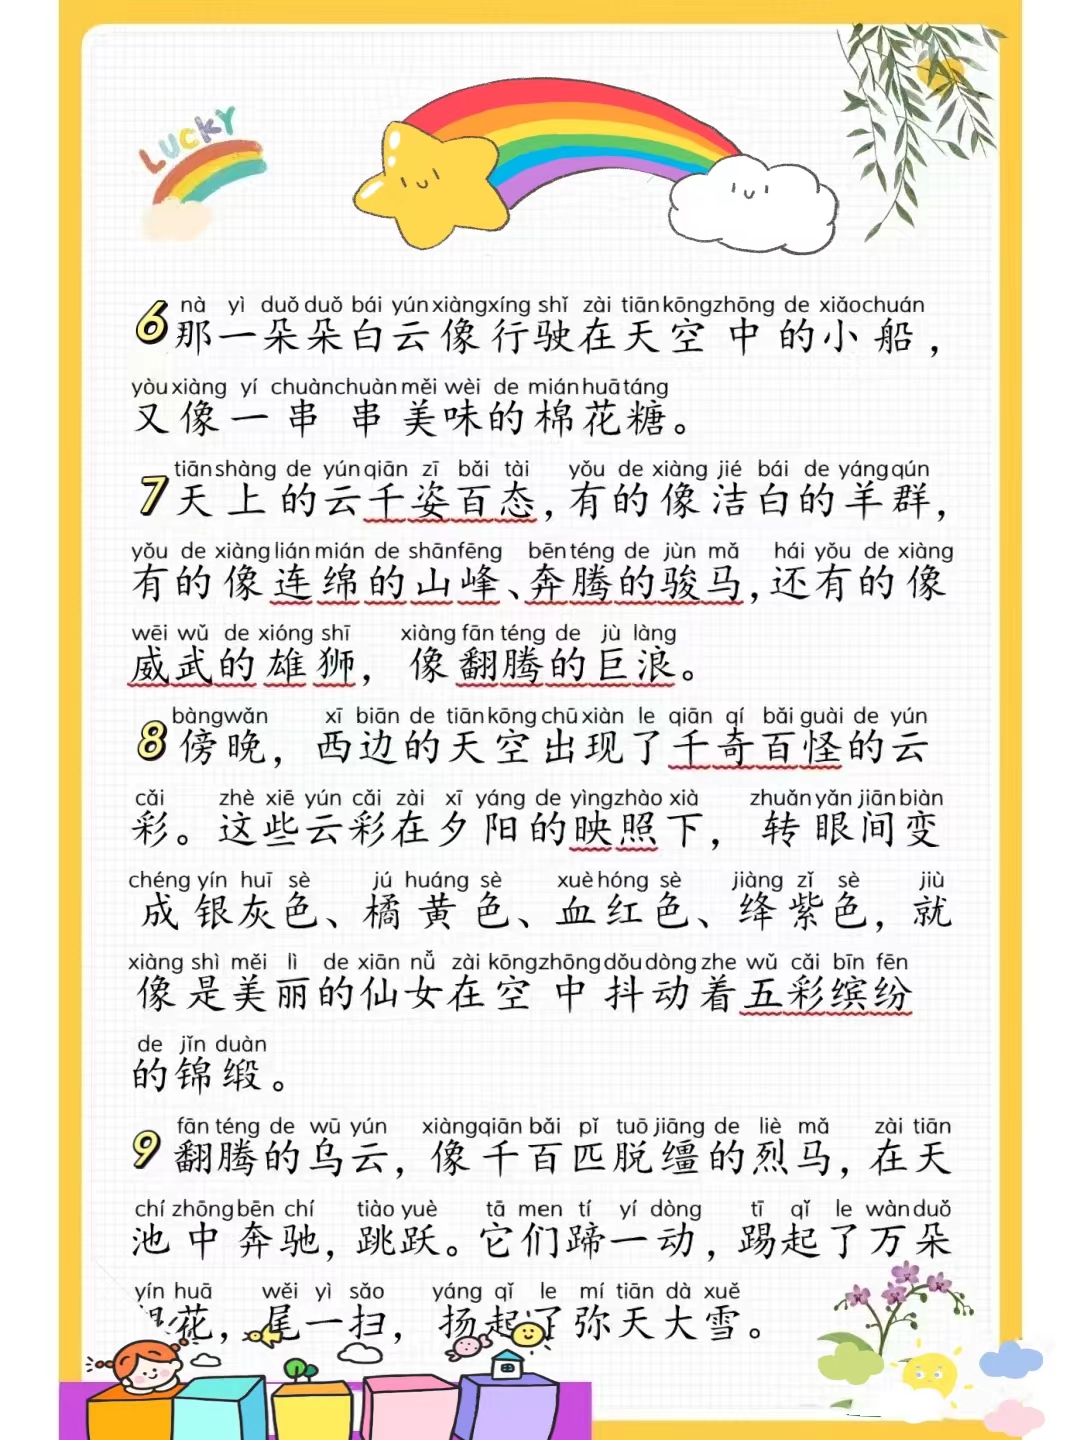 LUCKY
nà yì duǒ duǒ bái yún xiàng xíng shǐ zài tiān kōng zhōng de xiǎo chuán
6 那一朵朵白云像行驶在天空中的小船，
yòu xiàng yí chuàn chuàn měi wèi de mián huā táng
又像一串串美味的棉花糖。
tiān shàng de yún qiān zī bǎi tài yǒu de xiàng jié bái de yáng qún
7 天上的云千姿百态，有的像洁白的羊群，
yǒu de xiàng lián mián de shān fēng bēn téng de jùn mǎ hái yǒu de xiàng
有的像连绵的山峰、奔腾的骏马，还有的像
wēi wǔ de xióng shī xiàng fān téng de jù làng
威武的雄狮，像翻腾的巨浪。
bàng wǎn xī biān de tiān kōng chū xiàn le qiān qí bǎi guài de yún
8 傍晚，西边的天空出现了千奇百怪的云
cǎi zhè xiē yún cǎi zài xī yáng de yìng zhào xià zhuǎn yǎn jiān biàn
彩。这些云彩在夕阳的映照下，转眼间变
chéng yín huī sè jú huáng sè xuè hóng sè jiàng zǐ sè jiù
成银灰色、橘黄色、血红色、绛紫色，就
xiàng shì měi lì de xiān nǚ zài kōng zhōng dǒu dòng zhe wǔ cǎi bīn fēn
像是美丽的仙女在空中抖动着五彩缤纷
de jǐn duàn
的锦缎。
fān téng de wū yún xiàng qiān bǎi pǐ tuō jiāng de liè mǎ zài tiān
9 翻腾的乌云，像千百匹脱缰的烈马，在天
chí zhōng bēn chí tiào yuè tā men tí yí dòng tī qǐ le wàn duǒ
池中奔驰，跳跃。它们蹄一动，踢起了万朵
yín huā wěi yì sǎo yáng qǐ le mí tiān dà xuě
银花，尾一扫，扬起了弥天大雪。